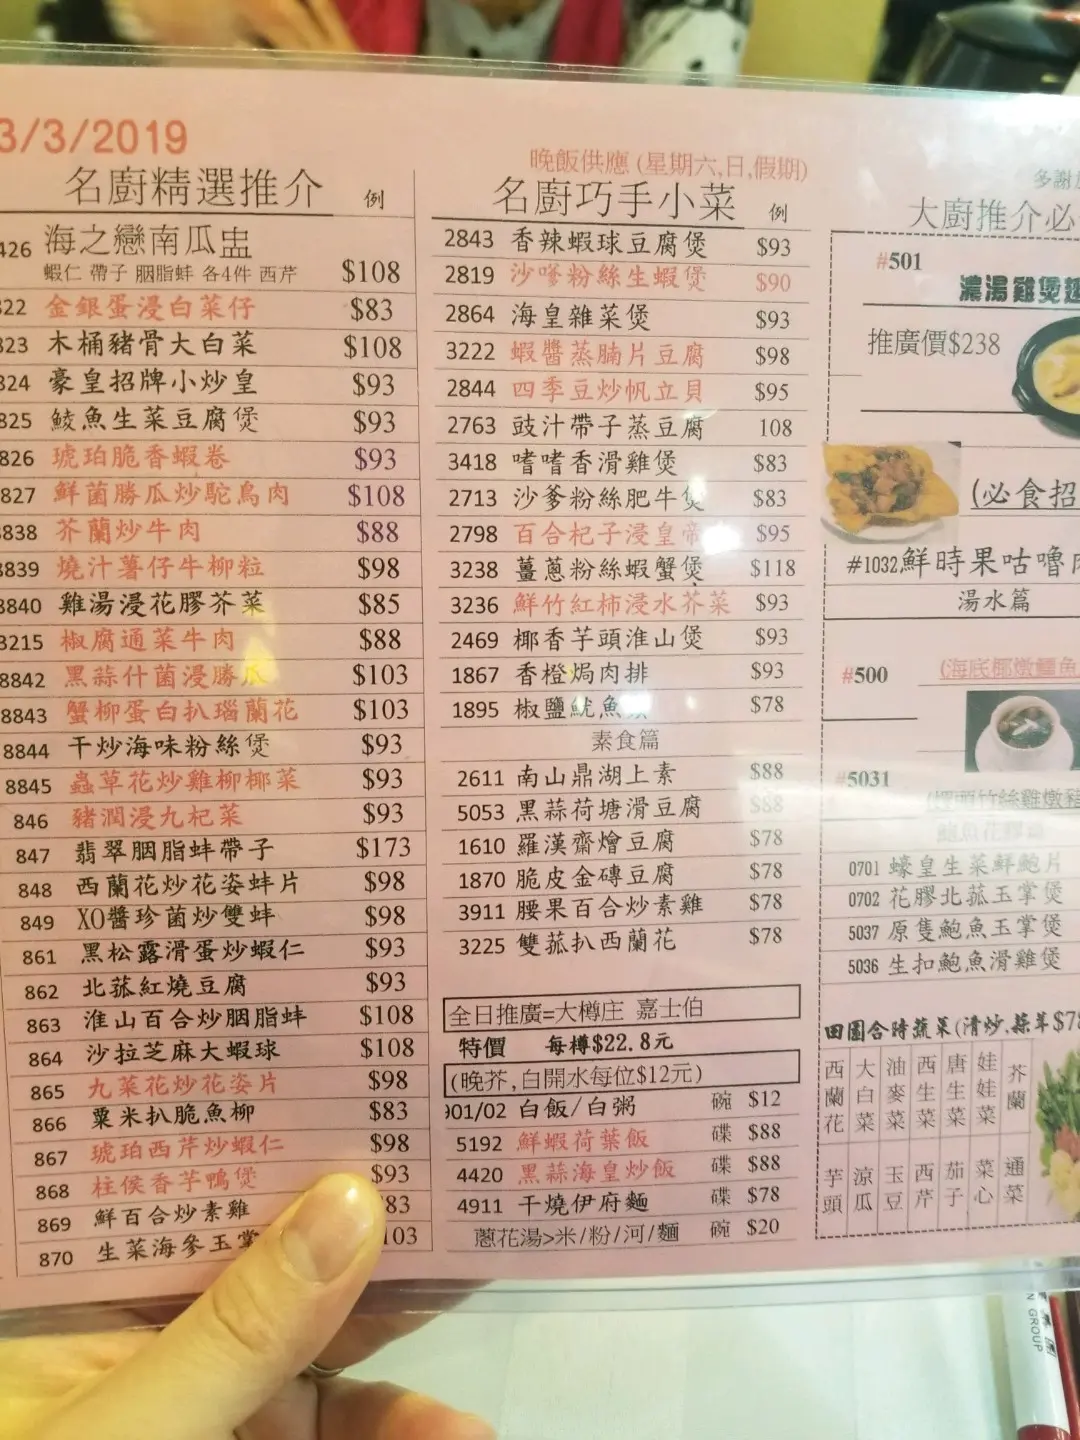 3/3/2019
名廚精選推介 例
426 海之戀南瓜盅
蝦仁 帶子 胭脂蚌 各4件 西芹 $108
822 金銀蛋浸白菜仔 $83
823 木桶豬骨大白菜 $108
824 豪皇招牌小炒皇 $93
825 鯪魚生菜豆腐煲 $93
826 琥珀脆香蝦卷 $93
827 鮮菌勝瓜炒駝鳥肉 $108
8838 芥蘭炒牛肉 $88
8839 燒汁薯仔牛柳粒 $98
8840 雞湯浸花膠芥菜 $85
3215 椒腐通菜牛肉 $88
8842 黑蒜什菌浸勝瓜 $103
8843 蟹柳蛋白扒瑙蘭花 $103
8844 干炒海味粉絲煲 $93
8845 蟲草花炒雞柳椰菜 $93
846 豬潤浸九杞菜 $93
847 翡翠胭脂蚌帶子 $173
848 西蘭花炒花姿蚌片 $98
849 XO醬珍菌炒雙蚌 $98
861 黑松露滑蛋炒蝦仁 $93
862 北菇紅燒豆腐 $93
863 淮山百合炒胭脂蚌 $108
864 沙拉芝麻大蝦球 $108
865 九菜花炒花姿片 $98
866 粟米扒脆魚柳 $83
867 琥珀西芹炒蝦仁 $98
868 柱侯香芋鴨煲 $93
869 鮮百合炒素雞 83
870 生菜海參玉掌 103
晚飯供應 (星期六,日,假期)
名廚巧手小菜 例
2843 香辣蝦球豆腐煲 $93
2819 沙嗲粉絲生蝦煲 $90
2864 海皇雜菜煲 $93
3222 蝦醬蒸腩片豆腐 $98
2844 四季豆炒帆立貝 $95
2763 豉汁帶子蒸豆腐 108
3418 嗜嗜香滑雞煲 $83
2713 沙爹粉絲肥牛煲 $83
2798 百合杞子浸皇帝 $95
3238 薑蔥粉絲蝦蟹煲 $118
3236 鮮竹紅柿浸水芥菜 $93
2469 椰香芋頭淮山煲 $93
1867 香橙焗肉排 $93
1895 椒鹽魷魚 $78
素食篇
2611 南山鼎湖上素 $88
5053 黑蒜荷塘滑豆腐 $88
1610 羅漢齋燴豆腐 $78
1870 脆皮金磚豆腐 $78
3911 腰果百合炒素雞 $78
3225 雙菰扒西蘭花 $78
全日推廣=大樽庄 嘉士伯
特價 每樽$22.8元
(晚芥,白開水每位$12元)
901/02 白飯/白粥 碗 $12
5192 鮮蝦荷葉飯 碟 $88
4420 黑蒜海皇炒飯 碟 $88
4911 干燒伊府麵 碟 $78
蔥花湯>米/粉/河/麵 碗 $20
多謝
大廚推介必
#501
濃湯雞煲翅
推廣價$238
(必食招
#1032鮮時果咕嚕肉
湯水篇
#500 (海底椰燉鱷魚
#5031
0701 蠔皇生菜鮮鮑片
0702 花膠北菰玉掌煲
5037 原隻鮑魚玉掌煲
5036 生扣鮑魚滑雞煲
田園合時蔬菜(清炒,蒜茸$78
西蘭花 大白菜 油麥菜 西生菜 唐生菜 娃娃菜 芥蘭
芋頭 涼瓜 玉豆 西芹 茄子 菜心 通菜
N GROUP